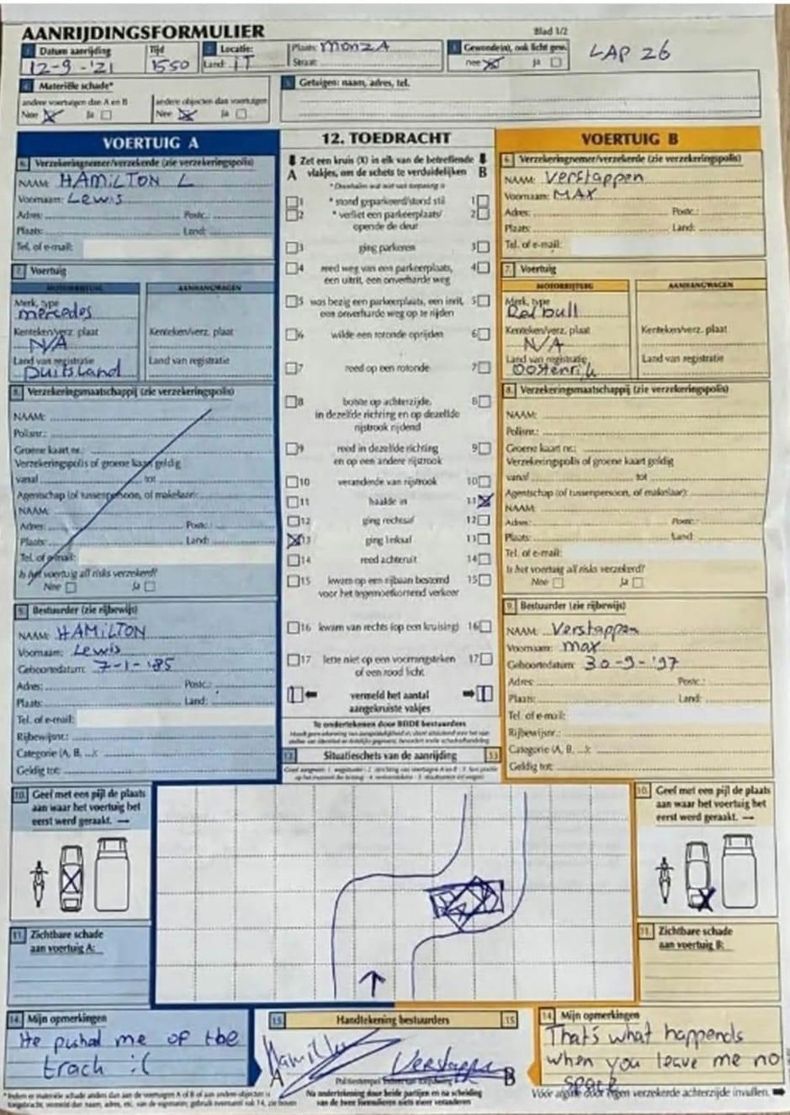 AANRIJDINGSFORMULIER
Blad 1/2
1 Datum aanrijding
Tijd
2 Locatie:
Plaats: MONZA
3 Gewonde(n), ook licht gew.
LAP 26
12-9-'21
1550
Land: IT
Straat:
nee ja
4 Materiële schade*
5 Getuigen: naam, adres, tel.
andere voertuigen dan A en B
andere objecten dan voertuigen
Nee Ja
Nee Ja
VOERTUIG A
6. Verzekeringnemer/verzekerde (zie verzekeringspolis)
NAAM: HAMILTON L
Voornaam: Lewis
Adres: Postc.:
Plaats: Land:
Tel. of e-mail:
7. Voertuig
MOTORRIJTUIG AANHANGWAGEN
Merk, type
mercedes
Kenteken/verz. plaat Kenteken/verz. plaat
N/A
Land van registratie Land van registratie
Duitsland
8. Verzekeringsmaatschappij (zie verzekeringspolis)
NAAM:
Polisnr.:
Groene kaart nr.:
Verzekeringspolis of groene kaart geldig
vanaf tot
Agentschap (of tussenpersoon, of makelaar):
NAAM:
Adres: Postc.:
Plaats: Land:
Tel. of e-mail:
Is het voertuig all risks verzekerd?
Nee Ja
9. Bestuurder (zie rijbewijs)
NAAM: HAMILTON
Voornaam: Lewis
Geboortedatum: 7-1-'85
Adres: Postc.:
Plaats: Land:
Tel. of e-mail:
Rijbewijsnr.:
Categorie (A, B, ...):
Geldig tot:
12. TOEDRACHT
Zet een kruis (X) in elk van de betreffende
A vlakjes, om de schets te verduidelijken B
1 * stond geparkeerd/stond stil 1
2 * verliet een parkeerplaats/ 2
opende de deur
3 ging parkeren 3
4 reed weg van een parkeerplaats, 4
een uitrit, een onverharde weg
5 was bezig een parkeerplaats, een inrit, 5
een onverharde weg op te rijden
6 wilde een rotonde oprijden 6
7 reed op een rotonde 7
8 botste op achterzijde, 8
in dezelfde richting en op dezelfde
rijstrook rijdend
9 reed in dezelfde richting 9
en op een andere rijstrook
10 veranderde van rijstrook 10
11 haalde in 11
12 ging rechtsaf 12
13 ging linksaf 13
14 reed achteruit 14
15 kwam op een rijbaan bestemd 15
voor het tegemoetkomend verkeer
16 kwam van rechts (op een kruising) 16
17 lette niet op een voorrangsteken 17
of een rood licht
1 vermeld het aantal 1
aangekruiste vakjes
Te ondertekenen door BEIDE bestuurders
VOERTUIG B
6. Verzekeringnemer/verzekerde (zie verzekeringspolis)
NAAM: Verstappen
Voornaam: MAX
Adres: Postc.:
Plaats: Land:
Tel. of e-mail:
7. Voertuig
MOTORRIJTUIG AANHANGWAGEN
Merk, type
Red bull
Kenteken/verz. plaat Kenteken/verz. plaat
N/A
Land van registratie Land van registratie
Oostenrijk
8. Verzekeringsmaatschappij (zie verzekeringspolis)
NAAM:
Polisnr.:
Groene kaart nr.:
Verzekeringspolis of groene kaart geldig
vanaf tot
Agentschap (of tussenpersoon, of makelaar):
NAAM:
Adres: Postc.:
Plaats: Land:
Tel. of e-mail:
Is het voertuig all risks verzekerd?
Nee Ja
9. Bestuurder (zie rijbewijs)
NAAM: Verstappen
Voornaam: max
Geboortedatum: 30-9-'97
Adres: Postc.:
Plaats: Land:
Tel. of e-mail:
Rijbewijsnr.:
Categorie (A, B, ...):
Geldig tot:
13 Situatieschets van de aanrijding 13
10. Geef met een pijl de plaats
aan waar het voertuig het
eerst werd geraakt.
10. Geef met een pijl de plaats
aan waar het voertuig het
eerst werd geraakt.
11. Zichtbare schade
aan voertuig A:
11. Zichtbare schade
aan voertuig B:
14. Mijn opmerkingen
He pushed me of the
track :(
15 Handtekening bestuurders 15
Hamilton
Verstappe
A B
Na ondertekening door beide partijen en na scheiding
van de twee formulieren niets meer veranderen
14. Mijn opmerkingen
That's what happends
when you leave me no
space